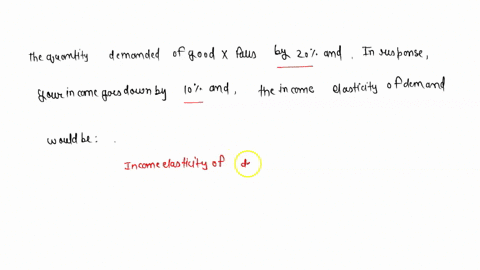 The quantity demanded of good X falls by 20% and . In response,
your income goes down by 10% and, the income elasticity of demand
would be: .
Income elasticity of d